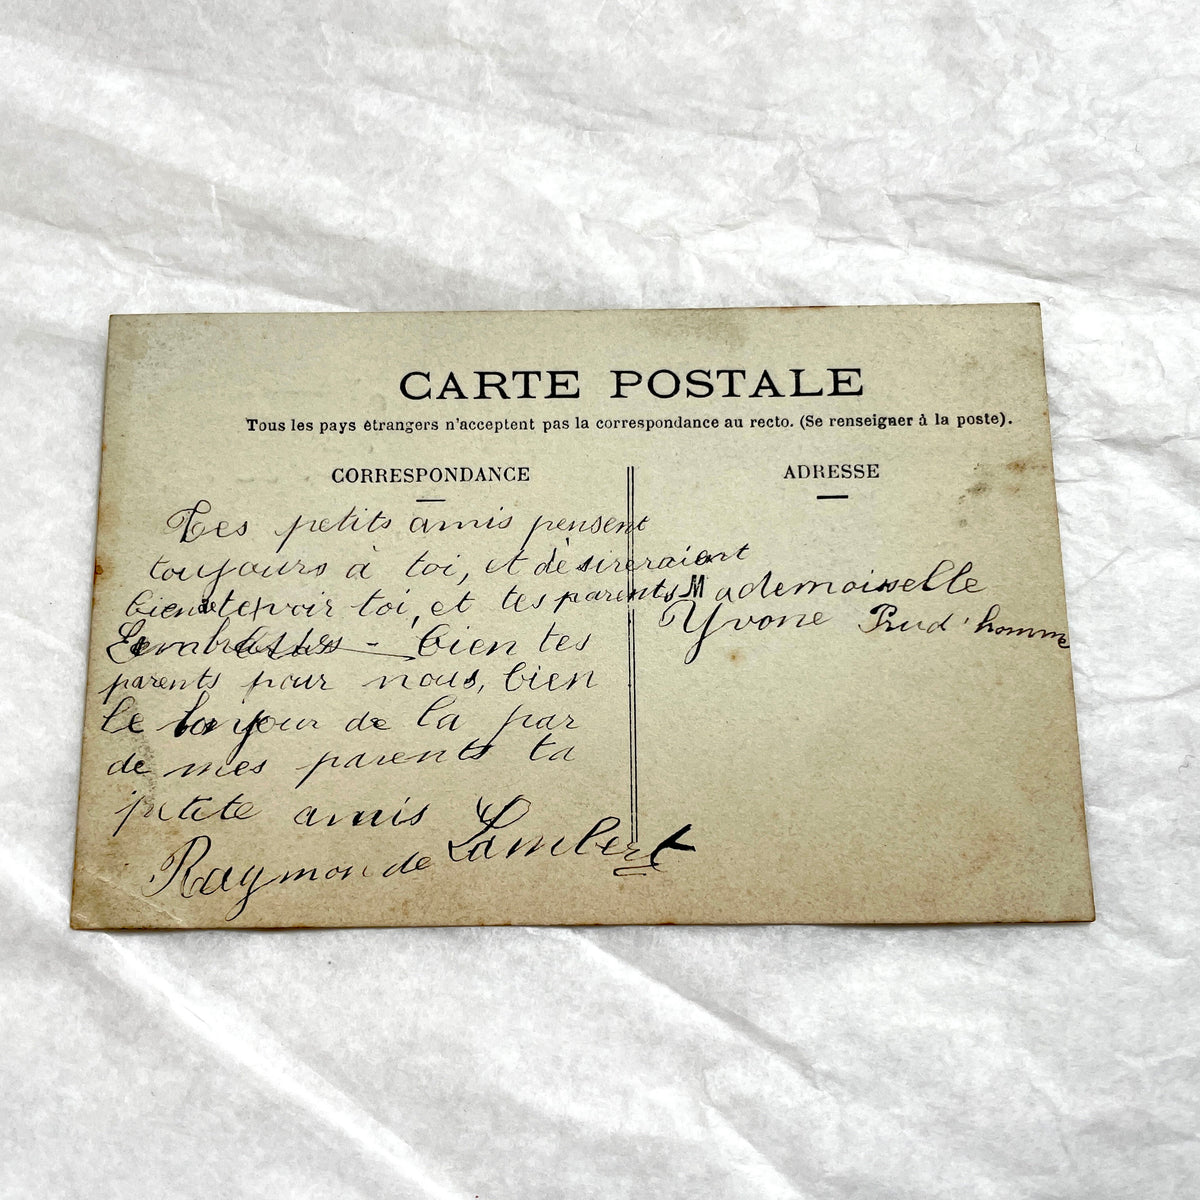 CARTE POSTALE
Tous les pays étrangers n'acceptent pas la correspondance au recto. (Se renseigner à la poste).
CORRESPONDANCE
Tes petits amis pensent
toujours à toi, et désireraient
bien te voir toi, et tes parents
Embrasses - bien tes
parents pour nous, bien
le bonjour de la par
de mes parents ta
petite amis
Raymonde Lambert
ADRESSE
Mademoiselle
Yvone Prud'homme